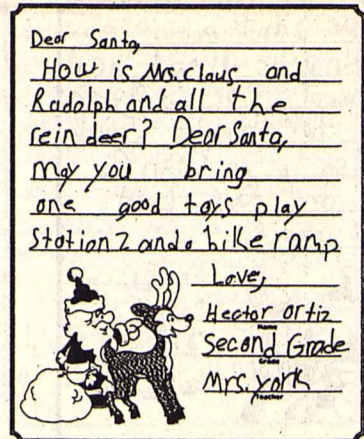 Dear Santa,
How is Mrs. Claus and
Radolph and all the
reindeer? Dear Santa,
may you bring
one good toys play
Station 2 and a bike ramp
Love,
Hector Ortiz
Name
Second Grade
Grade
Mrs. York
Teacher